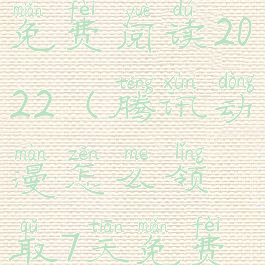 miǎn fèi yuè dú
免费阅读20
téng xùn dòng
22（腾讯动
màn zěn me lǐng
漫怎么领
qǔ tiān miǎn fèi
取7天免费